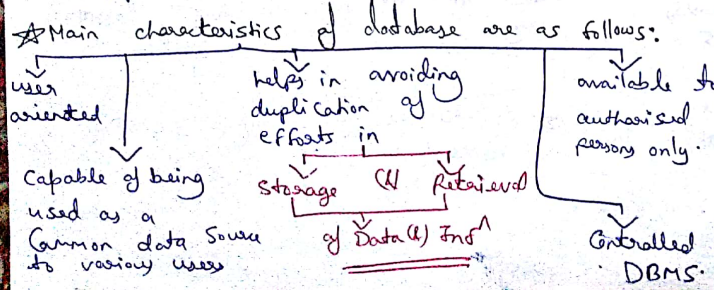 ☆ Main characteristics of database are as follows:
user
oriented
Capable of being
used as a
Common data Source
to various users
helps in avoiding
duplication of
efforts in
Storage (&) Retrieval
of Data (&) Infⁿ
available to
authorised
persons only.
Controlled
DBMS.